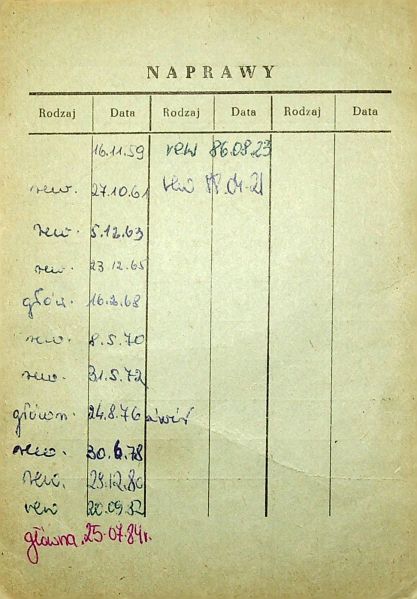 NAPRAWY
Rodzaj Data Rodzaj Data Rodzaj Data
16.11.59 rew 86.08.23
rew. 27.10.61 rew 88.04.21
rew. 5.12.63
rew. 23.12.65
głów. 16.2.68
rew. 8.5.70
rew. 31.5.72
główn. 24.8.76
rew. 30.6.78
rew. 29.12.80
rew 20.09.82
główna 25.07.84r.